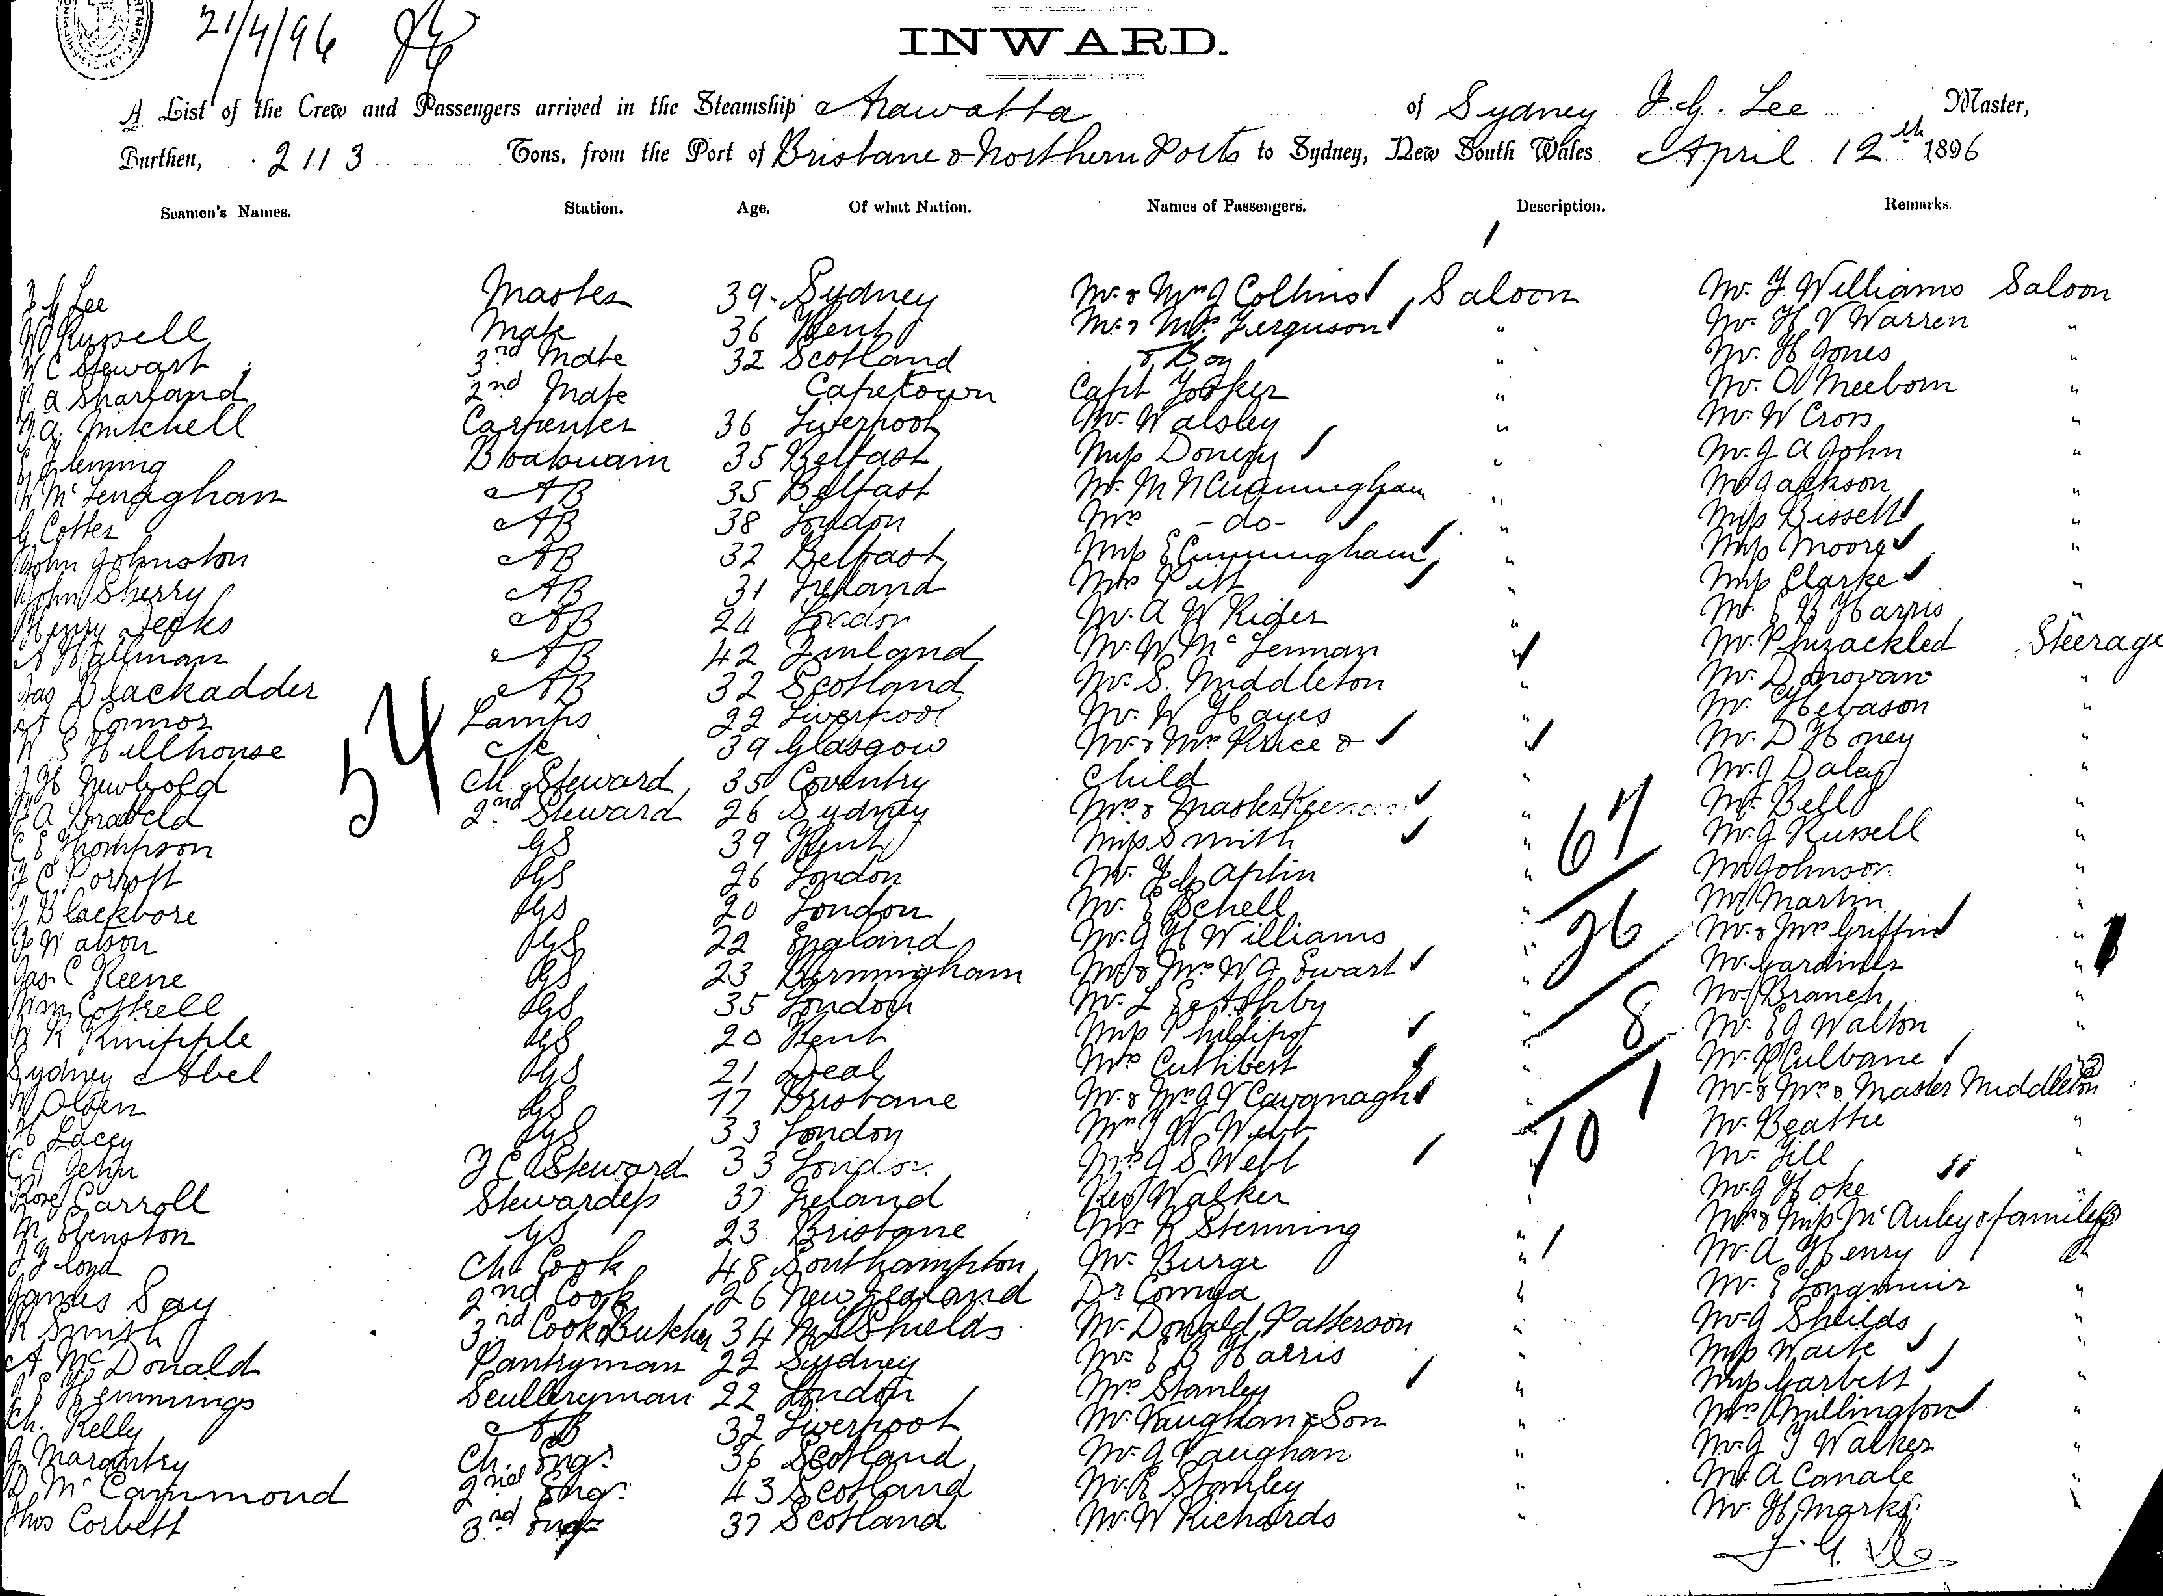 21/4/96
INWARD.
A List of the Crew and Passengers arrived in the Steamship Arawatta of Sydney J. G. Lee Master,
Burthen, 2113 Tons, from the Port of Brisbane & Northern Ports to Sydney, New South Wales April 12th 1896
Seamen's Names. Station. Age. Of what Nation. Names of Passengers. Description. Remarks.
J G Lee Master 39 Sydney Mr & Mrs J Collins Saloon Mr. F Williams Saloon
W Russell Mate 36 Kent Mr & Mrs Ferguson " Mr. H V Warren "
W C Stewart 3rd Mate 32 Scotland & Boy " Mr. H Jones "
A Sharland 2nd Mate Capetown Capt " Mr. O Meebom "
Mitchell Carpenter 36 Liverpool Mr. Walsley " Mr. W Cross "
Fleming Boatswain 35 Belfast Miss " Mr. J A John "
Mc Lenaghan AB 35 Belfast Mr. M N Cunningham " Mr Jackson "
G Cotter AB 38 London Mrs - do - " Miss Bissell "
John Johnston AB 32 Belfast Miss E Cunningham " Miss Moore "
John Sherry AB 31 Ireland Mrs Pitt " Miss Clarke "
Henry Jecks AB 24 London Mr. A W Rider " Mr E B Harris "
A Hallman AB 42 Finland Mr. W Mc Lennan " Mr. Phuzackled Steerage
Jas Blackadder AB 32 Scotland Mr. S. Middleton " Mr. Donovan "
O Connor Lamps 22 Liverpool Mr. W Hayes " Mr. Hebason "
W S Hillhouse 39 Glasgow Mr & Mrs Price & " Mr. D Honey "
J H Newbold Ch Steward 35 Coventry Child " Mr. J Daley "
54
2nd Steward 26 Sydney Mrs & Master Keenan " Mr. Bell "
C E Thompson GS 39 Kent Miss Smith " Mr. J Russell "
67
GS 26 London Mr. Aplin " Mr Johnson "
J Blackbore GS 20 London Mr. E Schell " Mr Martin "
Watson GS 22 England Mr. J H Williams " Mr. & Mrs Griffin "
26
Jas. C Keene GS 23 Birmingham Mr & Mrs W J Ewart " Mr. Gardiner "
Wm Cottrell GS 35 London Mr. L E Ashby " Mr Branch "
8
R Knipple GS 20 Kent Miss Phillips " Mr. E J Walton "
Sydney Abel GS 21 Deal Mrs Cuthbert " Mr. P Culbane
1
W Olsen GS 17 Brisbane Mr. & Mrs J V Cavanagh " Mr. & Mrs & Master Middleton
H Lacey GS 33 London Mr J W Webb " Mr. Beattie "
101
F C Steward 33 London Mrs J S Webb " Mr. Gill "
Rose Carroll Stewardess 37 Ireland Rev Walker " Mr. J Hoke "
GS 23 Brisbane Mr R Stenning " Mrs & Miss McAuley & family
J Floyd Ch. Cook 48 Southampton Mr. Burge " Mr. A Henry
James Say 2nd Cook 26 New Zealand Dr Comga " Mr. E Longmuir "
R Smith 3rd Cook & Butcher 34 Nth Shields Mr. Donald Patterson " Mr. J Sheilds "
A McDonald Pantryman 22 Sydney Mr E B Harris " Miss Waite "
Hemmings Sculleryman 22 London Mrs Stanley " Miss Garbett "
Ch. Kelly AB 32 Liverpool Mr. Vaughan & Son " Mrs Millington "
Ch. Engr 36 Scotland Mr. J Vaughan " Mr. J J Walker "
McCammond 2nd Eng. 43 Scotland Mr. R Stanley " Mr A Canale "
Thos Corbett 3rd Eng 37 Scotland Mr. W Richards " Mr. H Marks
J. G. Lee